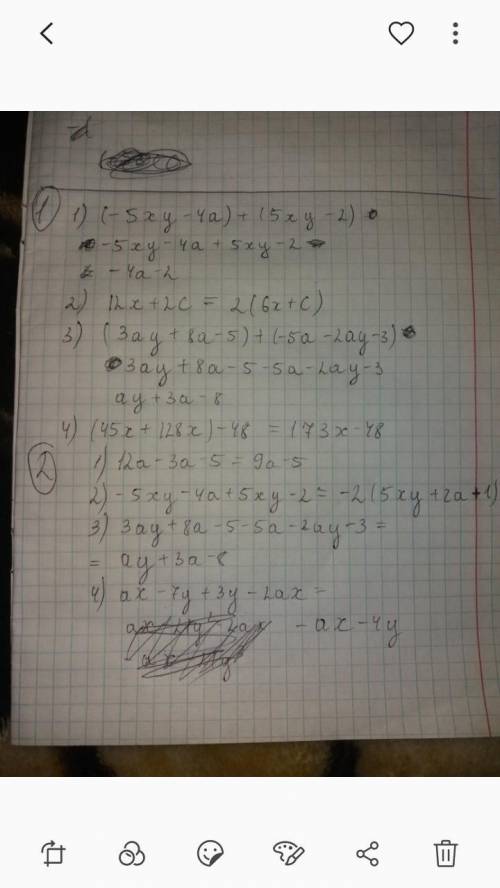 1
1) (-5xy-4a)+(5xy-2)
-5xy-4a+5xy-2
-4a-2
2) 12x+2c = 2(6x+c)
3) (3ay+8a-5)+(-5a-2ay-3)
3ay+8a-5-5a-2ay-3
ay+3a-8
4) (45x+128x)-48 =173x-48
2
1) 12a-3a-5=9a-5
2) -5xy-4a+5xy-2= -2(5xy+2a+1)
3) 3ay+8a-5-5a-2ay-3=
= ay+3a-8
4) ax-7y+3y-2ax=
-ax-4y